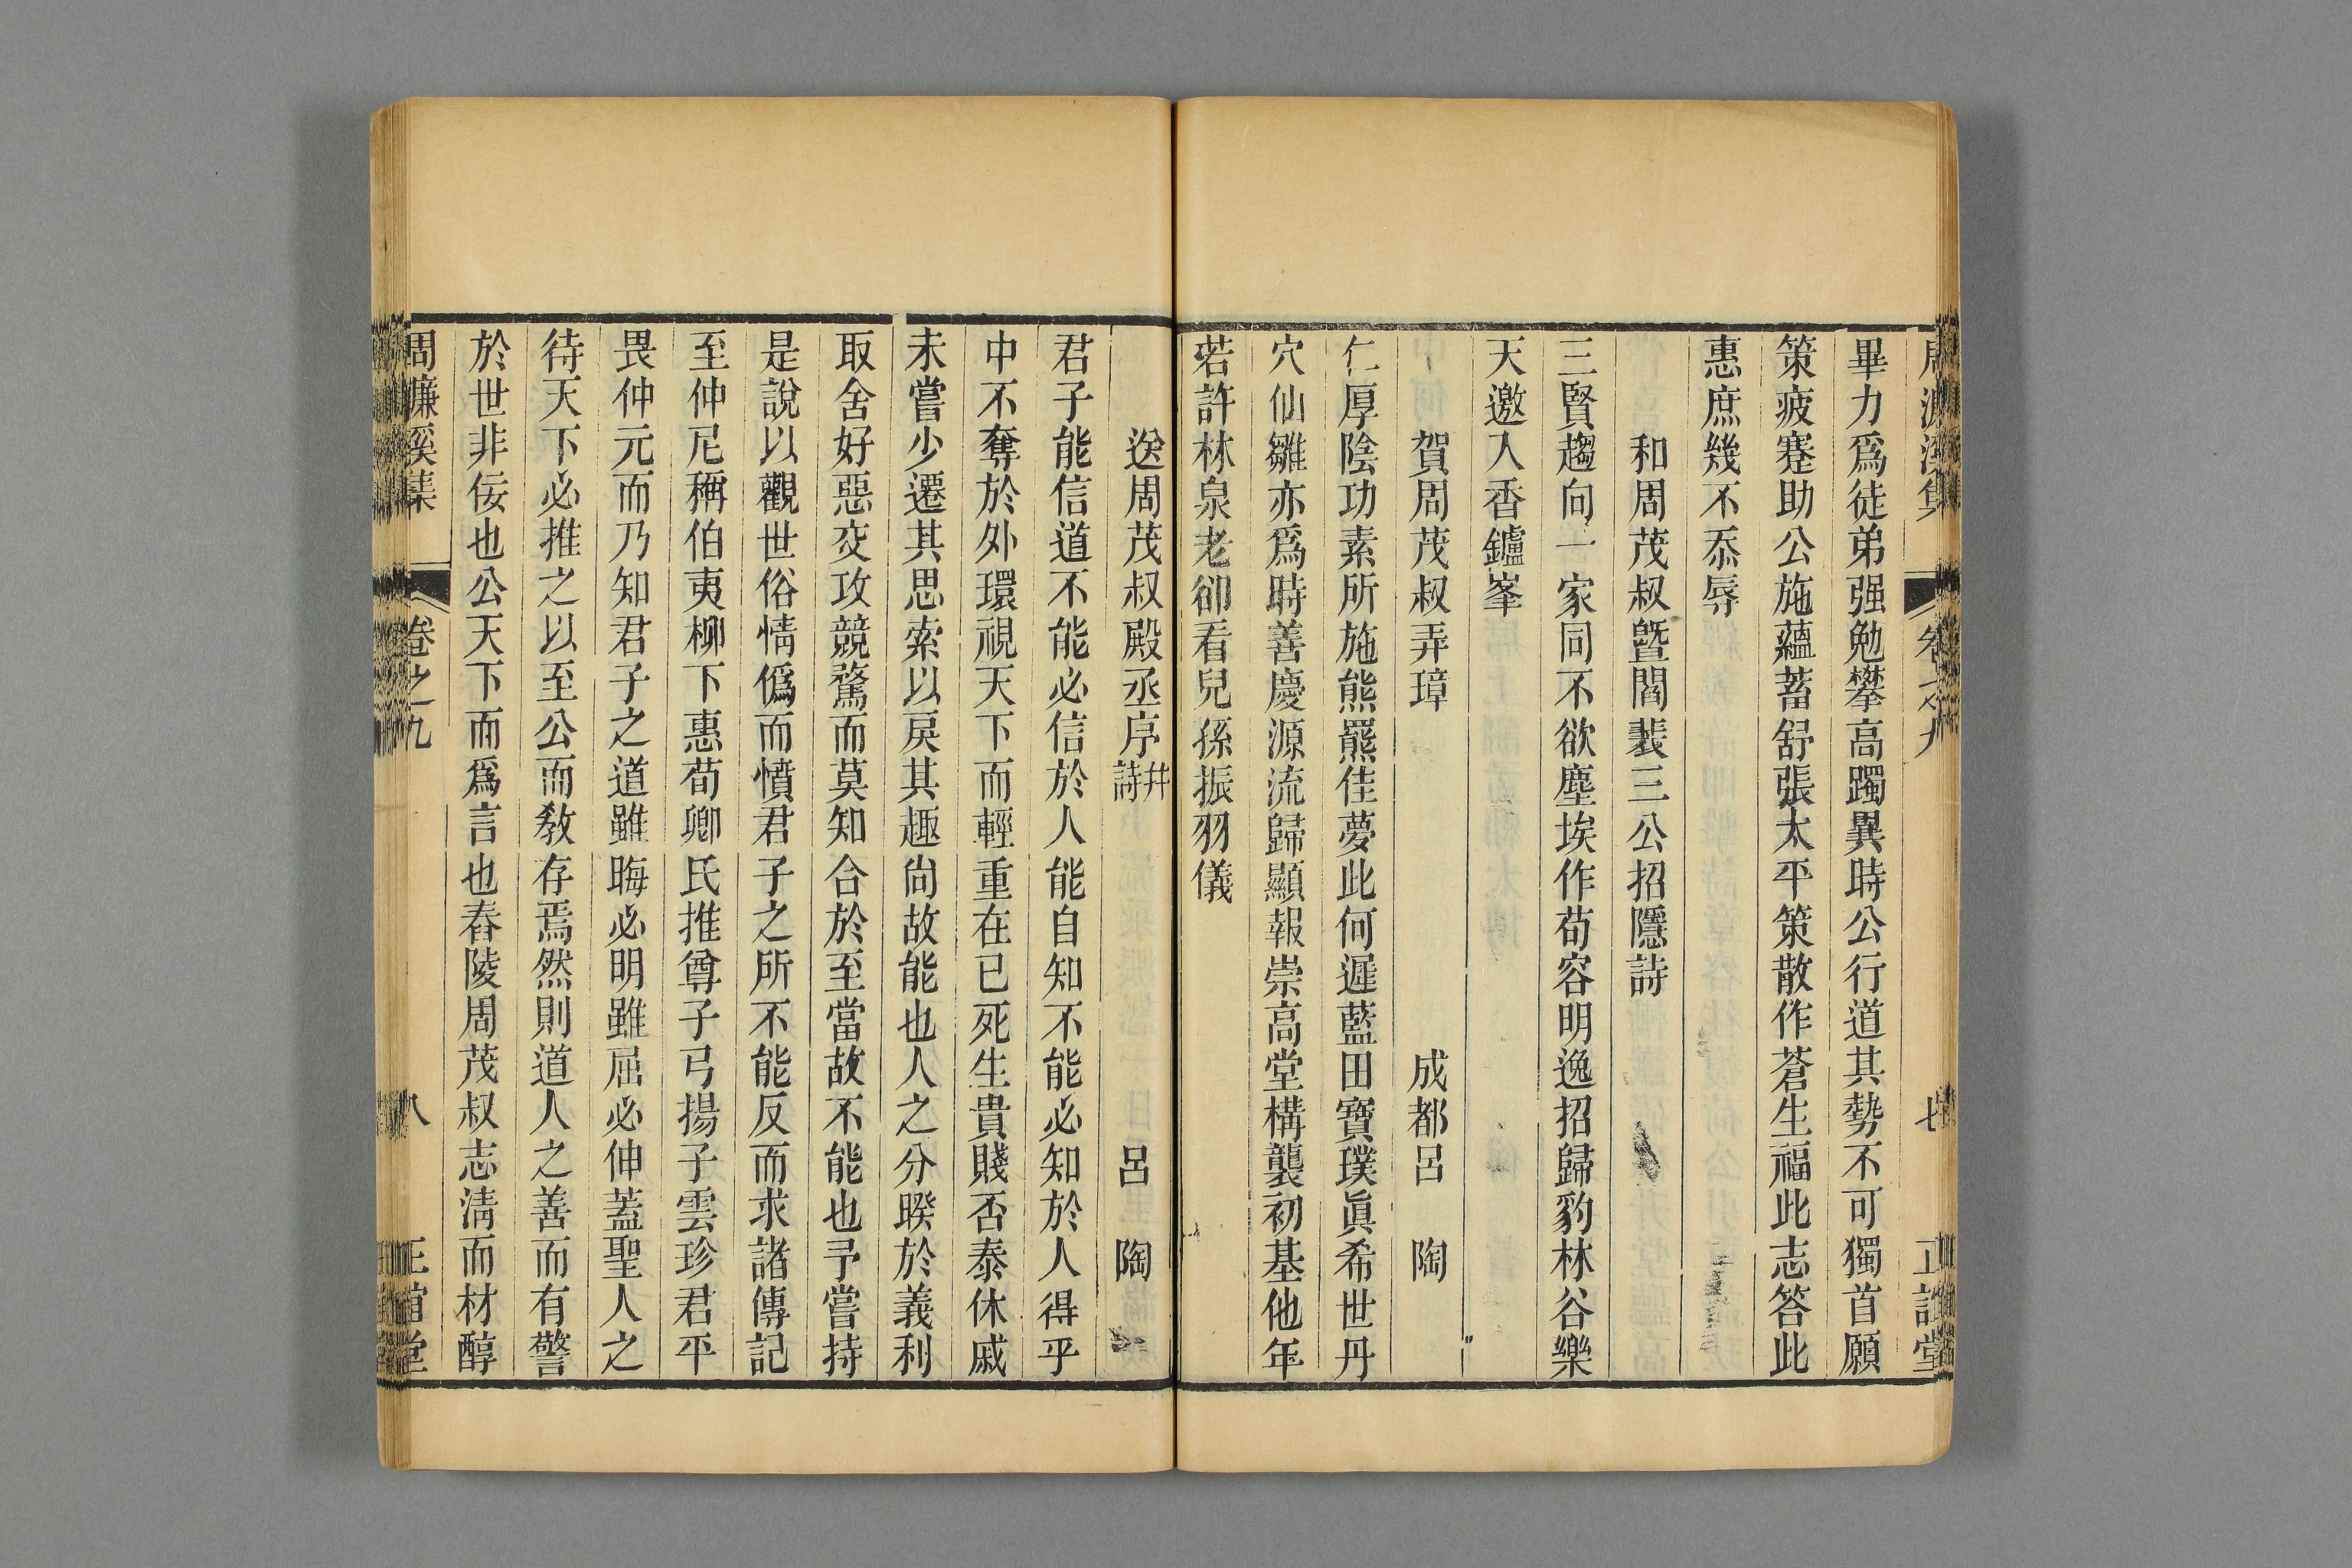 周濂溪集 卷之九 七 正誼堂
畢力爲徒弟强勉攀高躅異時公行道其勢不可獨首願
策疲蹇助公施蘊蓄舒張太平策散作蒼生福此志答此
惠庶幾不忝辱
和周茂叔曁閻裴三公招隱詩
三賢趨向一家同不欲塵埃作苟容明逸招歸豹林谷樂
天邀入香鑪峯
賀周茂叔弄璋 成都呂 陶
仁厚陰功素所施熊羆佳夢此何遲藍田寶璞眞希世丹
穴仙雛亦爲時善慶源流歸顯報崇高堂構襲初基他年
若許林泉老卻看兒孫振羽儀
送周茂叔殿丞序并詩 呂 陶
君子能信道不能必信於人能自知不能必知於人得乎
中不奪於外環視天下而輕重在已死生貴賤否泰休戚
未嘗少遷其思索以戾其趣尙故能也人之分睽於義利
取舍好惡交攻競騖而莫知合於至當故不能也予嘗持
是說以觀世俗情僞而憤君子之所不能反而求諸傳記
至仲尼稱伯夷柳下惠荀卿氏推尊子弓揚子雲珍君平
畏仲元而乃知君子之道雖晦必明雖屈必伸蓋聖人之
待天下必推之以至公而敎存焉然則道人之善而有警
於世非佞也公天下而爲言也舂陵周茂叔志淸而材醇
周濂溪集 卷之九 八 正誼堂